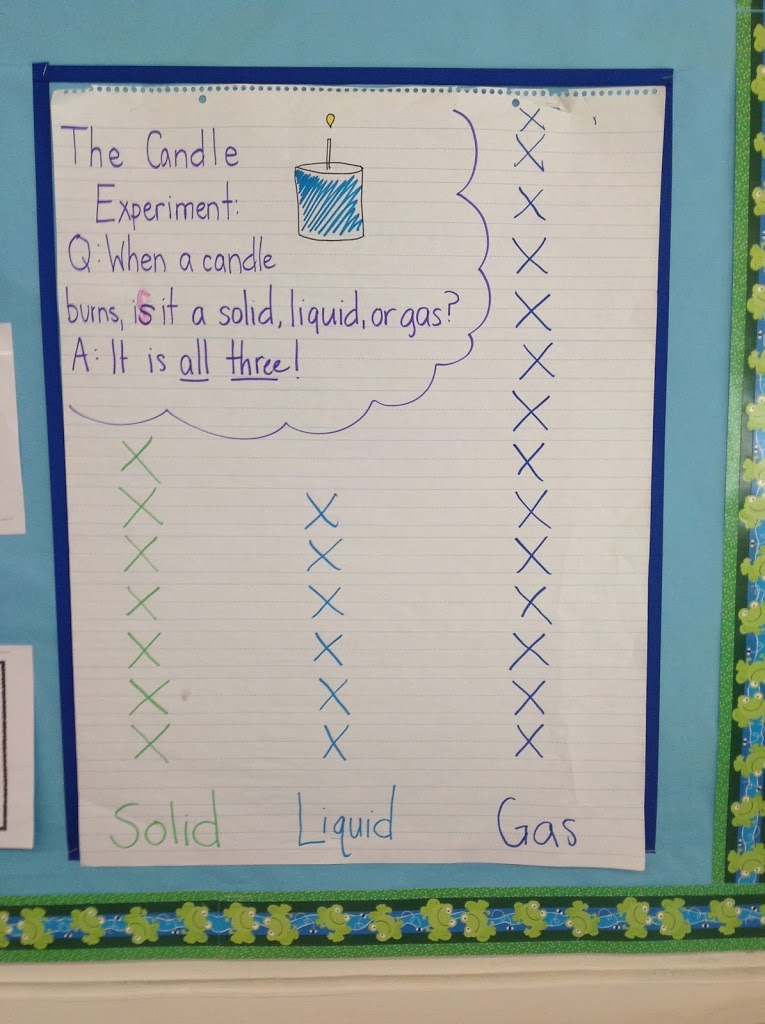 The Candle
Experiment:
Q: When a candle
burns, is it a solid, liquid, or gas?
A: It is all three!
X
X
X
X
X
X
X
X
X X
X X X
X X X
X X X
X X X
X X X
X X X
Solid Liquid Gas